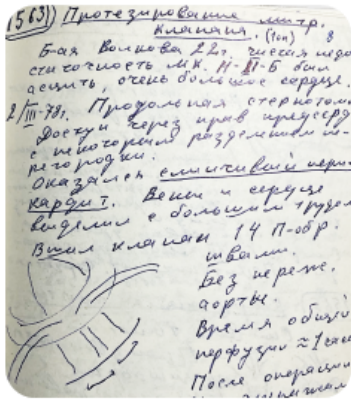 1563) Протезирование митр.
клапана. (1оп) 8
Б-ая Волкова 22г. чистая недо
статочность МК. II-III-Б был
асцит, очень большое сердце.
2/III-78г. Продольная стернотом
Доступ через прав предсерд
с некоторым разделением п-
регородки.
Оказался слипчивый пери-
кардит. Вены и сердце
выделил с большим трудом
Вшил клапан 14 П-обр.
швами.
Без переж.
аорты.
Время общей
перфузии ≈ 1 час
После операции